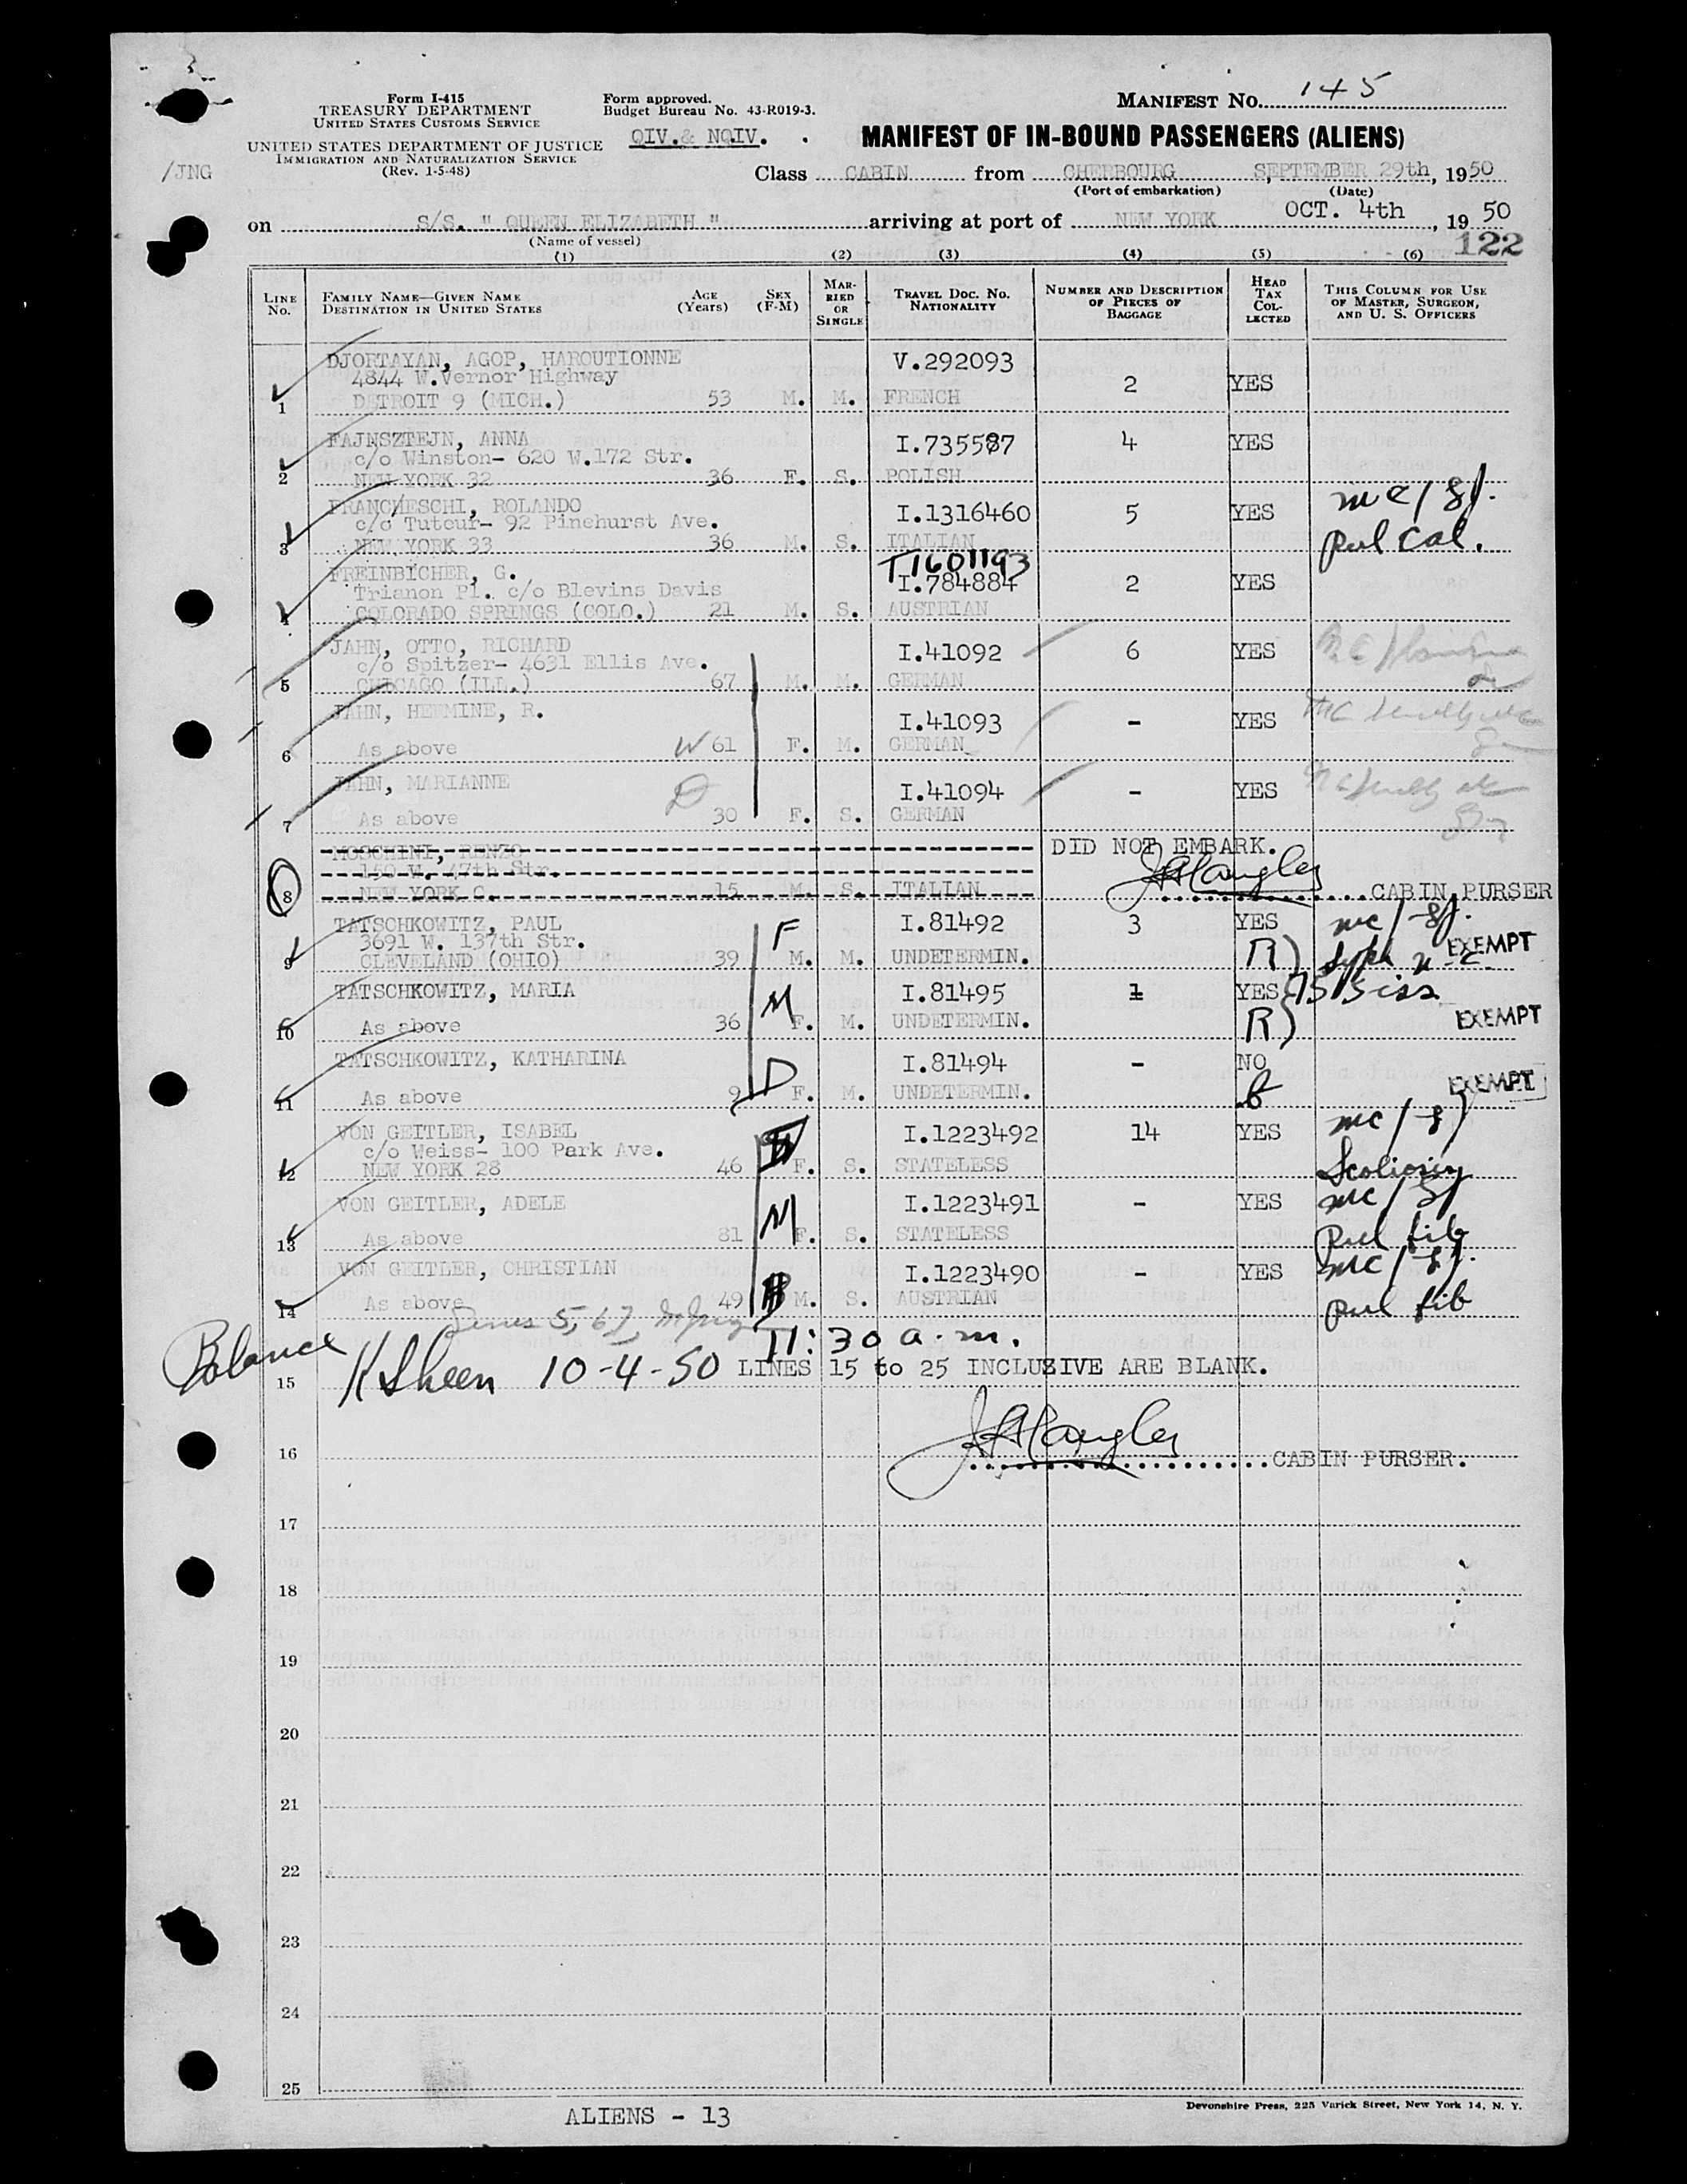 Form I-415
TREASURY DEPARTMENT
UNITED STATES CUSTOMS SERVICE
UNITED STATES DEPARTMENT OF JUSTICE
IMMIGRATION AND NATURALIZATION SERVICE
(Rev. 1-5-48)
/JNG
Form approved.
Budget Bureau No. 43-R019-3.
QIV.& NQIV.
MANIFEST NO. 145
MANIFEST OF IN-BOUND PASSENGERS (ALIENS)
Class CABIN from CHERBOURG SEPTEMBER 29th, 1950
(Port of embarkation) (Date)
on S/S. " QUEEN ELIZABETH " arriving at port of NEW YORK OCT. 4th, 19 50
(Name of vessel)
122
(1) (2) (3) (4) (5) (6)
LINE No. FAMILY NAME—GIVEN NAME DESTINATION IN UNITED STATES AGE (Years) SEX (F-M) MARRIED OR SINGLE TRAVEL DOC. NO. NATIONALITY NUMBER AND DESCRIPTION OF PIECES OF BAGGAGE HEAD TAX COLLECTED THIS COLUMN FOR USE OF MASTER, SURGEON, AND U. S. OFFICERS
DJORTAYAN, AGOP, HAROUTIONNE V.292093
4844 W.Vernor Highway 2 YES
1 DETROIT 9 (MICH.) 53 M. M. FRENCH
FAJNSZTEJN, ANNA I.735587 4 YES
c/o Winston- 620 W.172 Str.
2 NEW YORK 32 36 F. S. POLISH
FRANCHESCHI, ROLANDO I.1316460 5 YES mc/gf.
c/o Tutour- 92 Pinehurst Ave.
3 NEW YORK 33 36 M. S. ITALIAN pul cal.
T1601193
FREINBICHER, G. I.784884 2 YES
Trianon Pl. c/o Blevins Davis
4 COLORADO SPRINGS (COLO.) 21 M. S. AUSTRIAN
JAHN, OTTO, RICHARD I.41092 6 YES
c/o Spitzer- 4631 Ellis Ave.
5 CHICAGO (ILL.) 67 M. M. GERMAN
JAHN, HERMINE, R. I.41093 - YES
6 As above W 61 F. M. GERMAN
JAHN, MARIANNE I.41094 - YES
7 As above D 30 F. S. GERMAN
MOSCHINI, RENZO DID NOT EMBARK.
150 W. 47th Str.
8 NEW YORK C. 15 M. S. ITALIAN CABIN PURSER
TATSCHKOWITZ, PAUL F I.81492 3 YES mc/gf.
3691 W. 137th Str.
9 CLEVELAND (OHIO) 39 M. M. UNDETERMIN. R) EXEMPT
TATSCHKOWITZ, MARIA M I.81495 1 YES
10 As above 36 F. M. UNDETERMIN. R) EXEMPT
TATSCHKOWITZ, KATHARINA D I.81494 - NO
11 As above 9 F. M. UNDETERMIN. EXEMPT
VON GEITLER, ISABEL I.1223492 14 YES mc/gf
c/o Weiss- 100 Park Ave.
12 NEW YORK 28 46 F. S. STATELESS Scoliosis
VON GEITLER, ADELE M I.1223491 - YES mc/gf
13 As above 81 F. S. STATELESS pul fib
VON GEITLER, CHRISTIAN I.1223490 - YES mc/gf.
14 As above 49 M. S. AUSTRIAN pul fib
11:30 a.m.
Balance
15 K Sheen 10-4-50 LINES 15 to 25 INCLUSIVE ARE BLANK.
16 CABIN PURSER.
17
18
19
20
21
22
23
24
25
ALIENS - 13
Devonshire Press, 225 Varick Street, New York 14, N. Y.